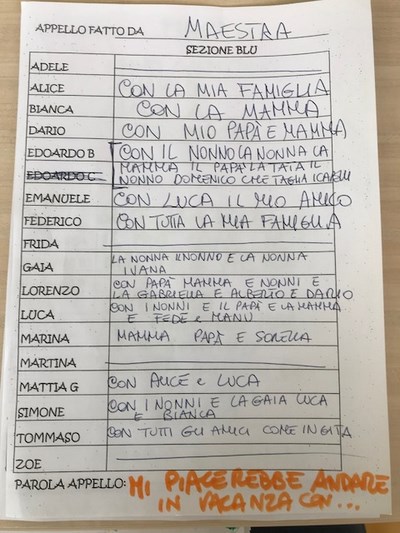 APPELLO FATTO DA MAESTRA
SEZIONE BLU
ADELE
ALICE CON LA MIA FAMIGLIA
BIANCA CON LA MAMMA
DARIO CON MIO PAPÀ E MAMMA
EDOARDO B CON IL NONNO LA NONNA LA
MAMMA IL PAPÀ LA TATA IL
EDOARDO C NONNO DOMENICO CHE TAGLIA I CAPELLI
EMANUELE CON LUCA IL MIO AMICO
FEDERICO CON TUTTA LA MIA FAMIGLIA
FRIDA
GAIA LA NONNA IL NONNO E LA NONNA
IVANA
LORENZO CON PAPÀ MAMMA E NONNI E
LA GABRIELLA E ALBERTO E DARIO
LUCA CON I NONNI E IL PAPÀ E LA MAMMA
E FEDE e MANU
MARINA MAMMA PAPÀ E SORELLA
MARTINA
MATTIA G CON ALICE e LUCA
SIMONE CON I NONNI E LA GAIA LUCA
E BIANCA
TOMMASO CON TUTTI GLI AMICI COME IN GITA
ZOE
PAROLA APPELLO: MI PIACEREBBE ANDARE
IN VACANZA CON...